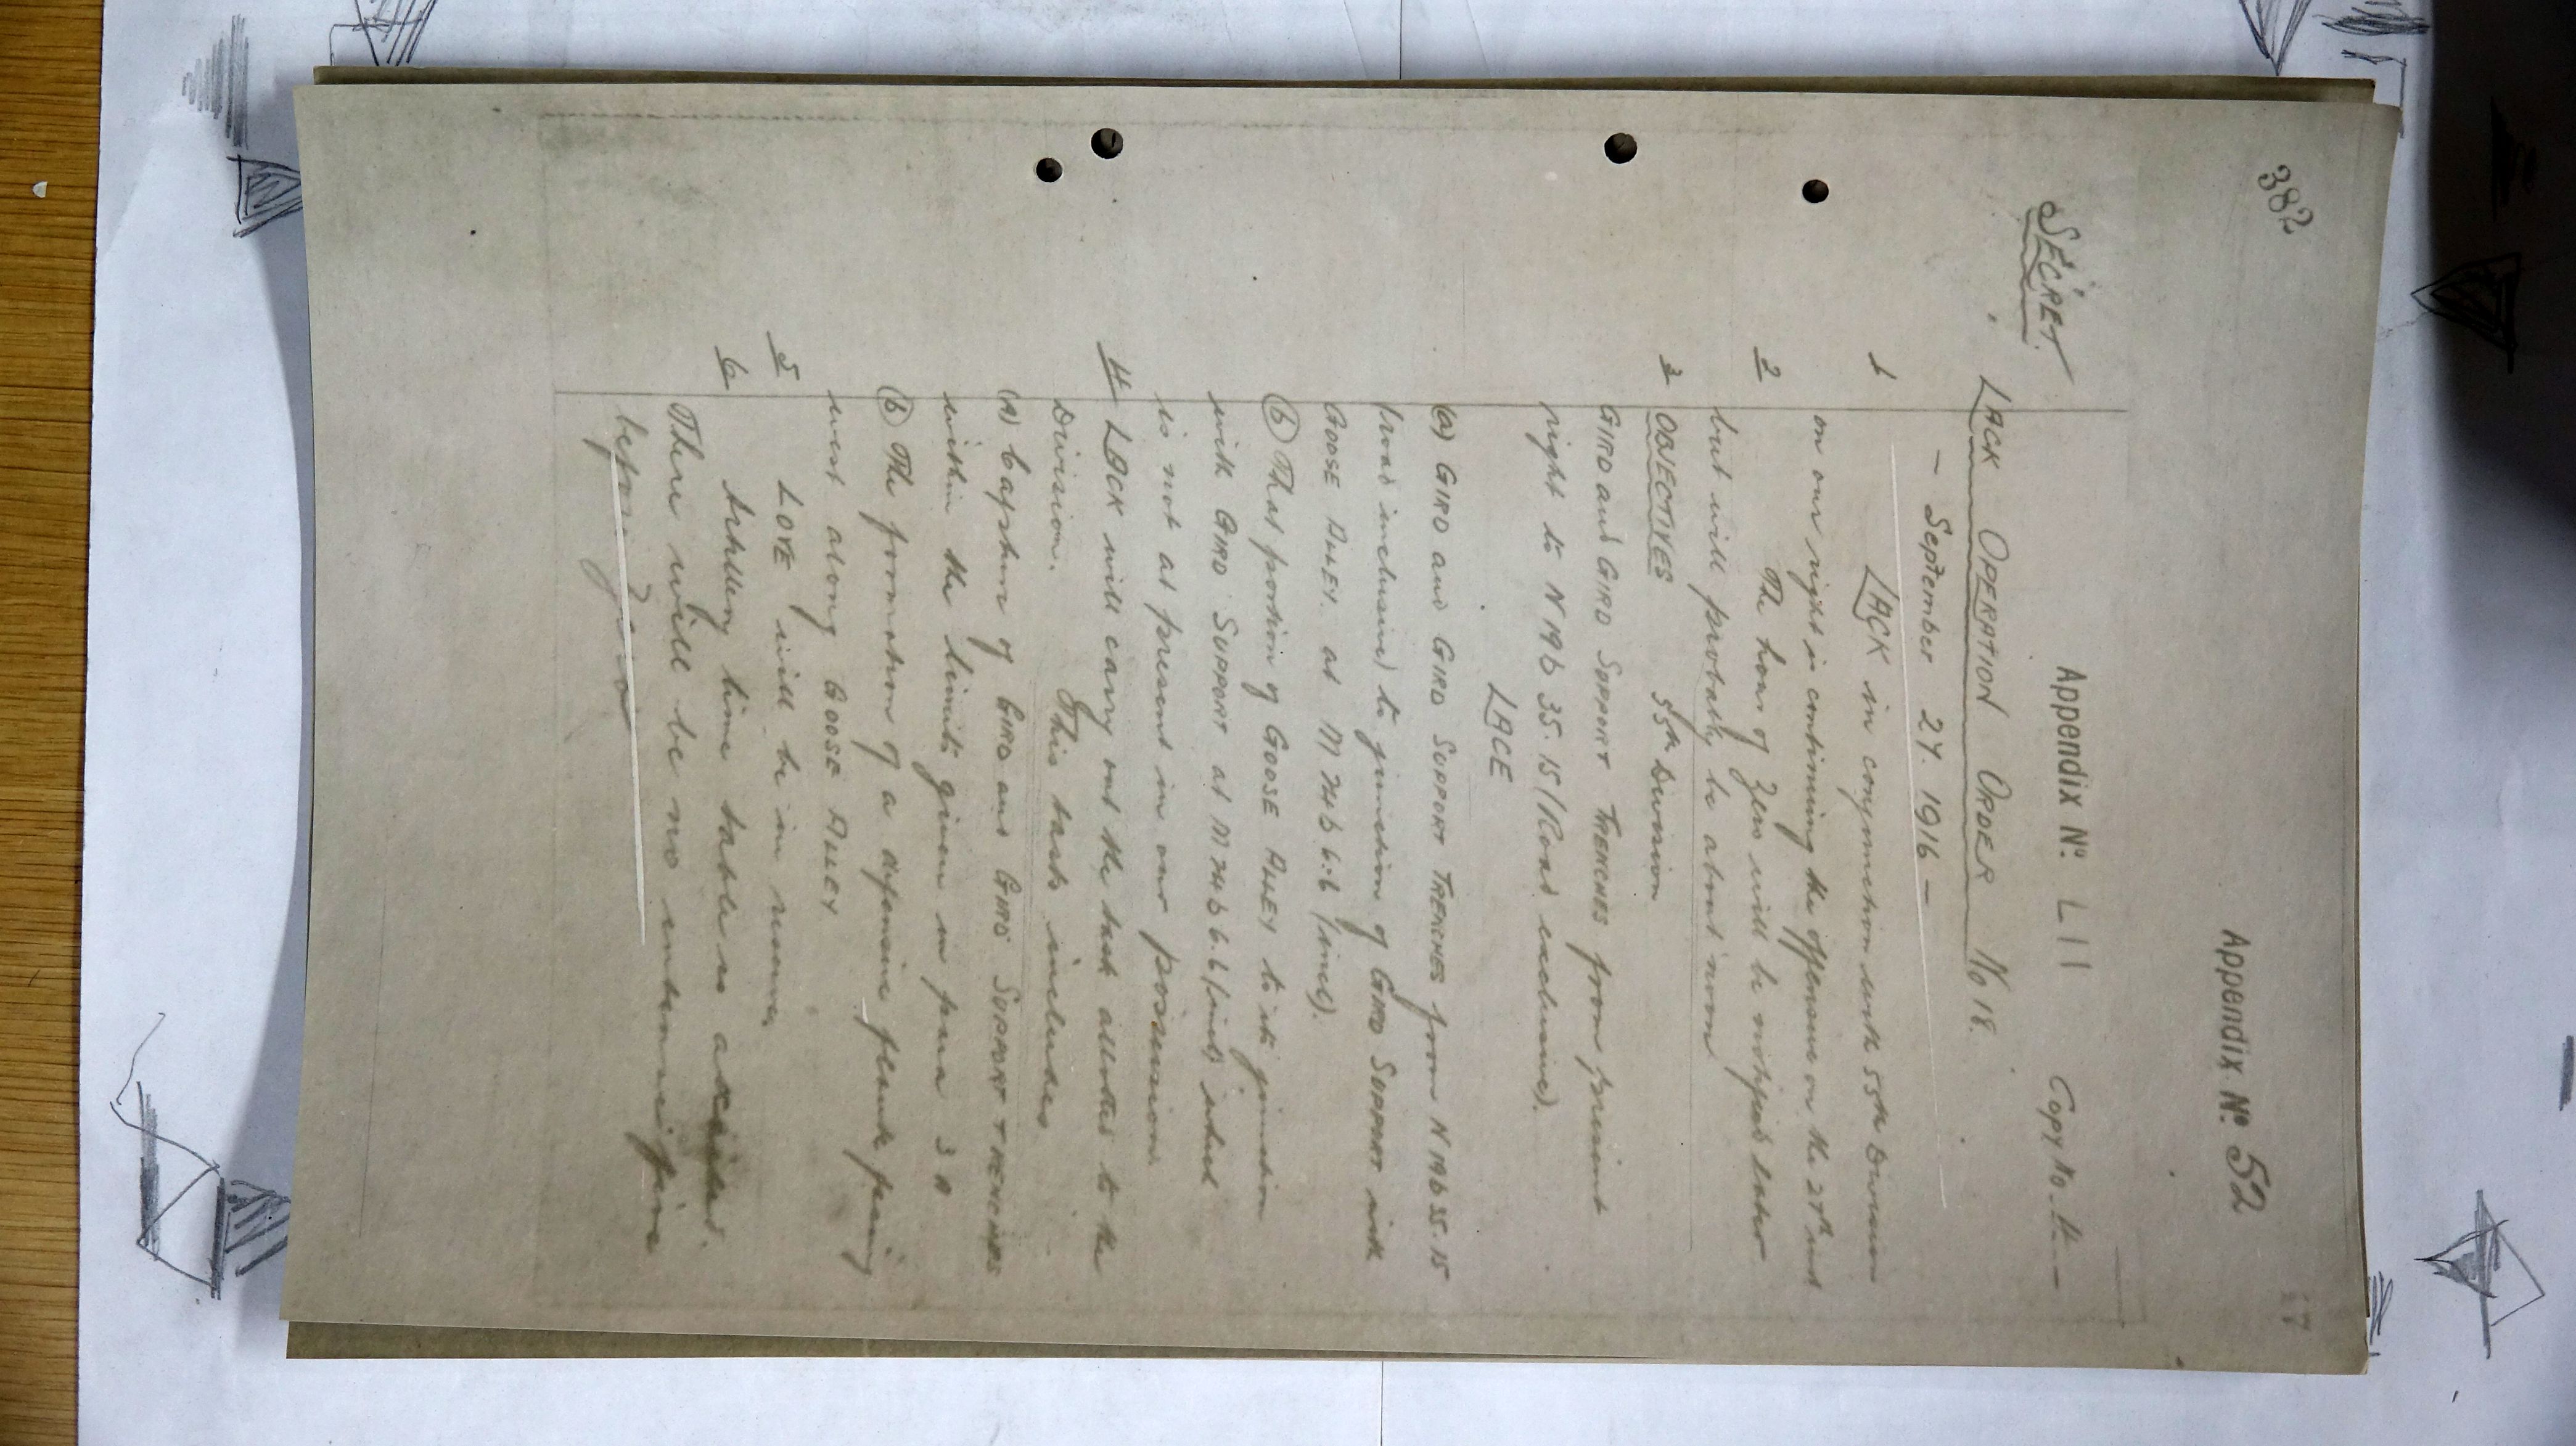 382
Appendix Nº 52
17
Appendix Nº LII
SECRET.
Copy No. 4
LACK OPERATION ORDER No 18.
- September 27. 1916 -
1 LACK in conjunction with 55th Division
on our right is continuing the offensive on the 27th inst
2 The hour of Zero will be notified later
but will probably be about noon
3 OBJECTIVES 55th Division
GIRD and GIRD SUPPORT TRENCHES from present
right to N 19 b 35.15 (Road exclusive).
LACE
(a) GIRD and GIRD SUPPORT TRENCHES from N 19 b 35.15
(road inclusive) to junction of GIRD SUPPORT with
GOOSE ALLEY at M 24 b 6.6 (incl).
(b) That portion of GOOSE ALLEY to its junction
with GIRD SUPPORT at M 24 b 6.6 (incl) which
is not at present in our possession.
4 LACK will carry out the task allotted to the
Division. This task includes
(A) Capture of GIRD and GIRD SUPPORT TRENCHES
within the limits given in para 3 A
(b) The formation of a defensive flank facing
west along GOOSE ALLEY
5 LOVE will be in reserve
6 Artillery time table is attached.
There will be no intensive fire
before Zero